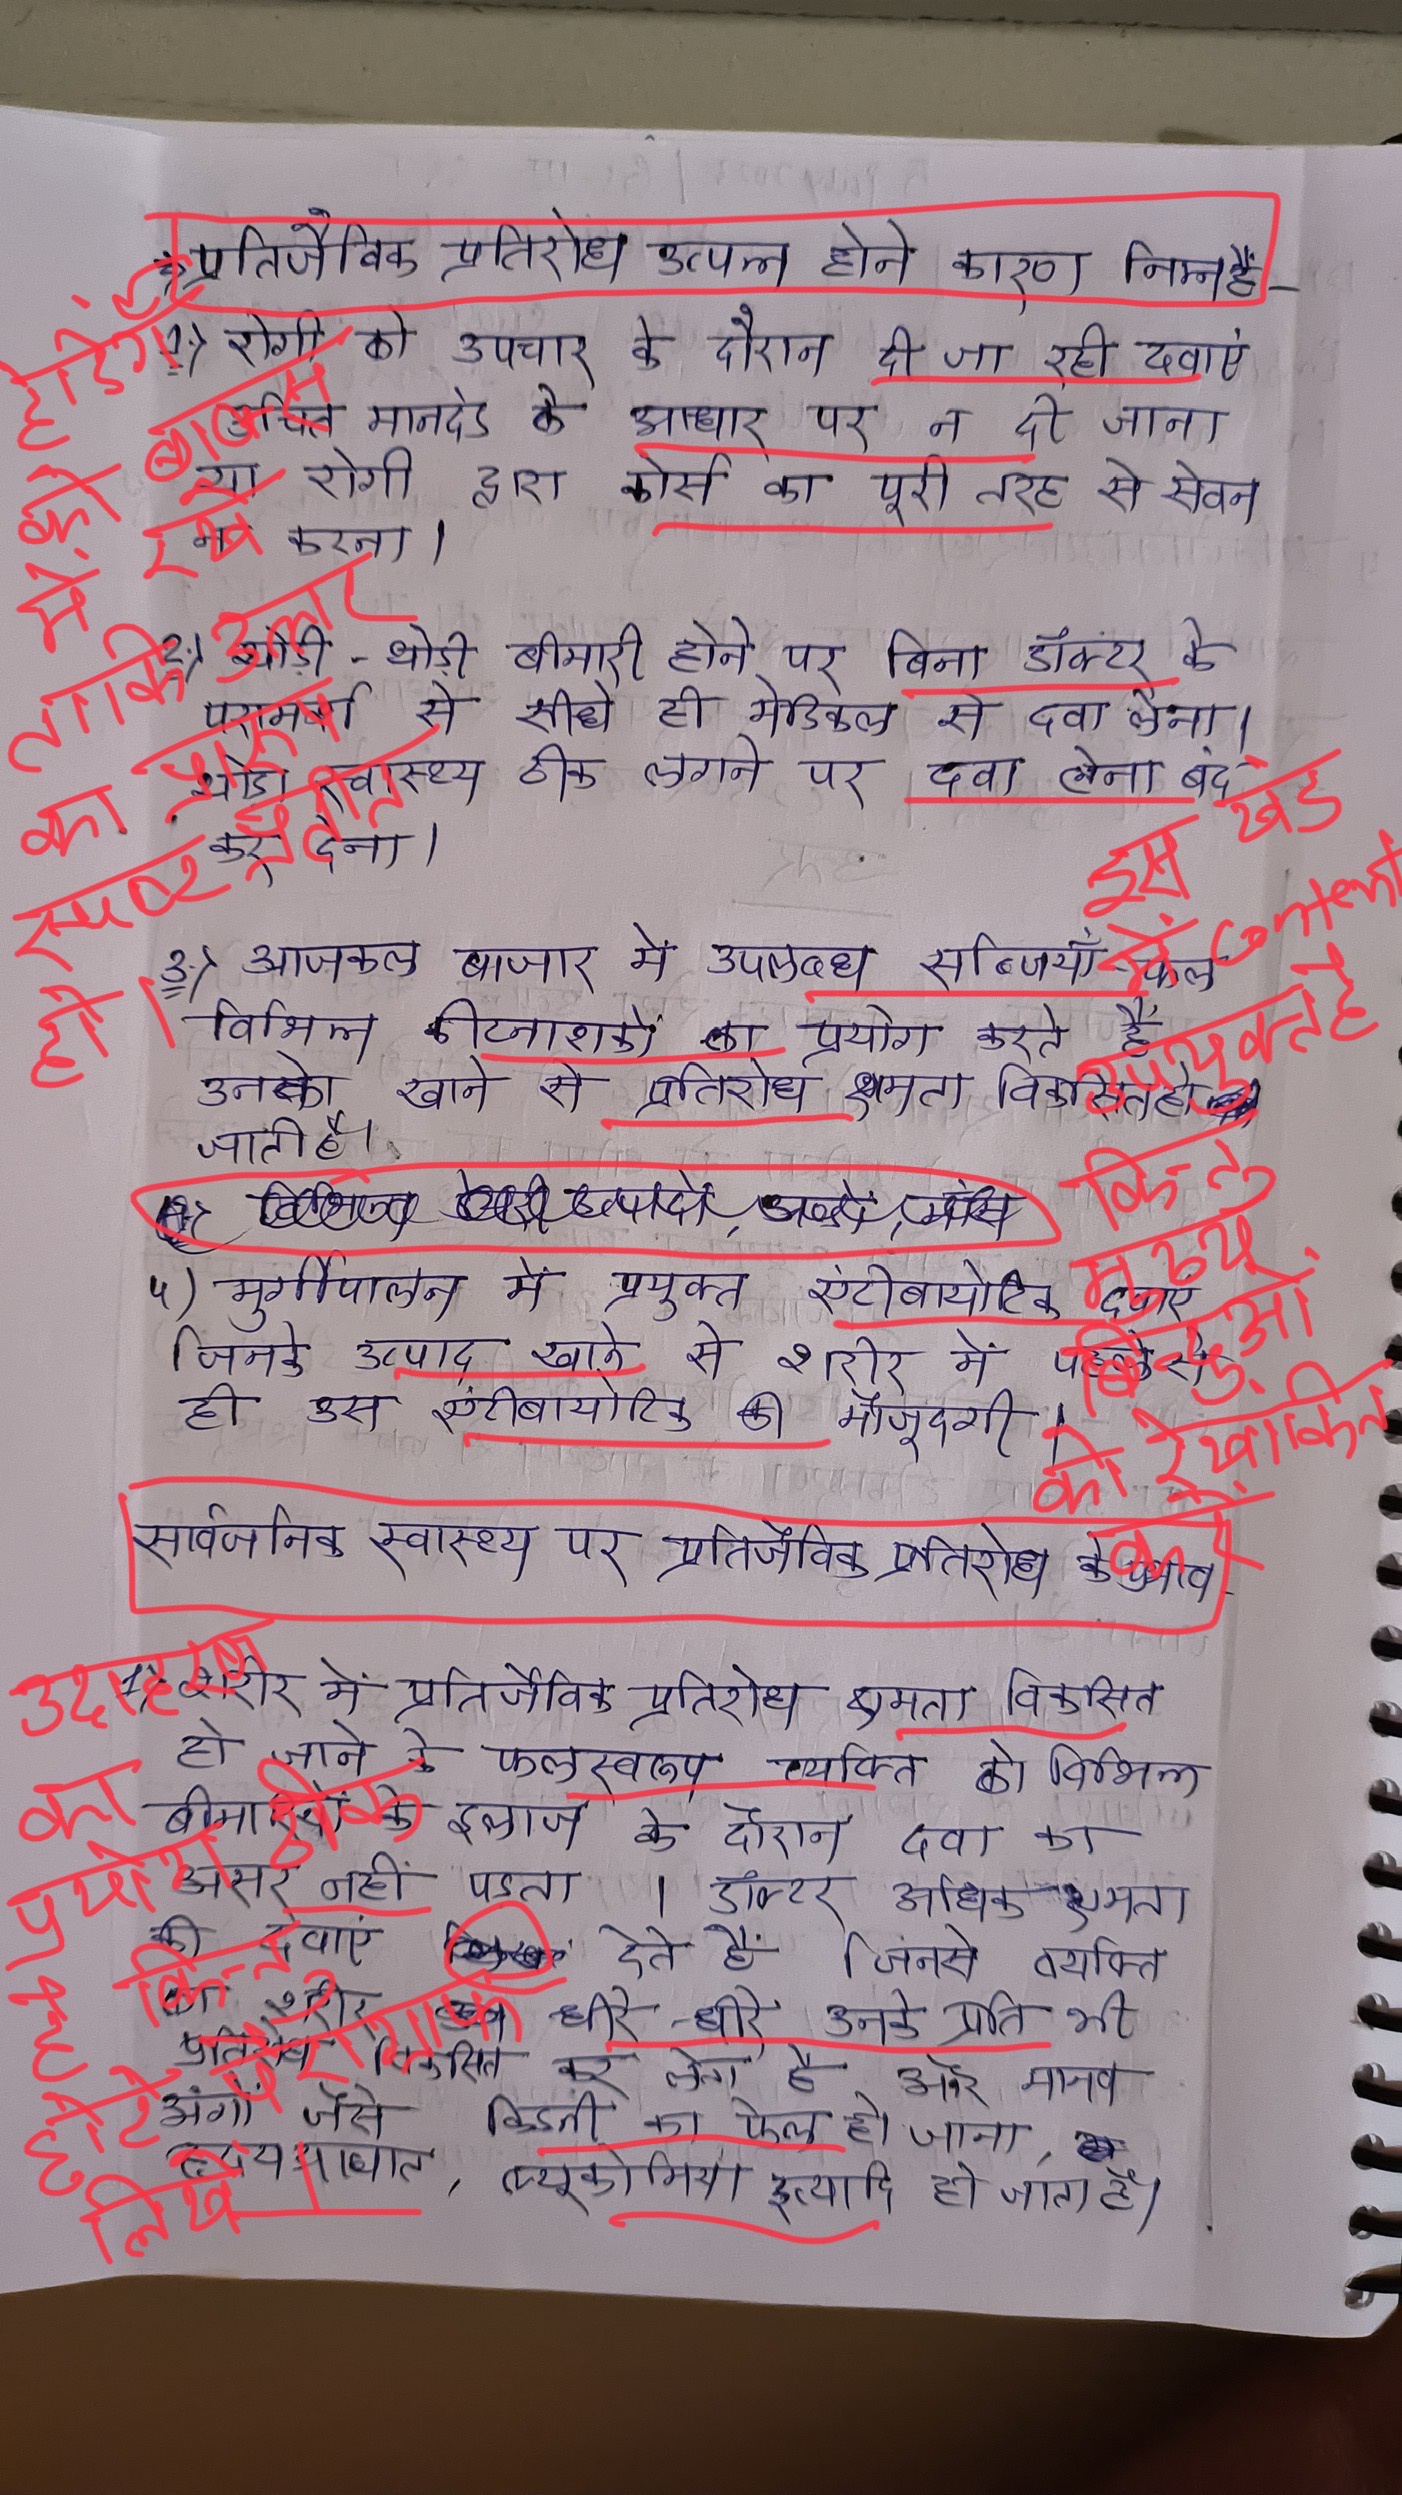 प्रतिजैविक प्रतिरोध उत्पन्न होने कारण निम्न हैं-
1.) रोगी को उपचार के दौरान दी जा रही दवाएं
उचित मानदंड के आधार पर न दी जाना
या रोगी द्वारा कोर्स का पूरी तरह से सेवन
न करना।
2.) थोड़ी - थोड़ी बीमारी होने पर बिना डॉक्टर के
परामर्श से सीधे ही मेडिकल से दवा लेना।
थोडा स्वास्थ्य ठीक लगने पर दवा लेना बंद
कर देना।
3.) आजकल बाजार में उपलब्ध सब्जियाँ-फल
विभिन्न कीटनाशकों का प्रयोग करते हैं
उनको खाने से प्रतिरोध क्षमता विकसित हो
जाती है।
विभिन्न डेयरी उत्पादों, अण्डे, मांस
4) मुर्गीपालन में प्रयुक्त एंटीबायोटिक दवाएं
जिनके उत्पाद खाने से शरीर में पहले से
ही उस एंटीबायोटिक की मौजूदगी।
सार्वजनिक स्वास्थ्य पर प्रतिजैविक प्रतिरोध के प्रभाव-
1.) शरीर में प्रतिजैविक प्रतिरोध क्षमता विकसित
हो जाने के फलस्वरूप व्यक्ति को विभिन्न
बीमारियों के इलाज के दौरान दवा का
असर नहीं पडता । डॉक्टर अधिक क्षमता
की दवाएं देते हैं जिनसे व्यक्ति
का शरीर धीरे-धीरे उनके प्रति भी
प्रतिरोध विकसित कर लेता है और मानव
अंगों जैसे किडनी का फेल हो जाना,
हृदयआघात, ल्यूकोमिया इत्यादि हो जाता है।
हेडिंग
को बाक्स
में रखें
ताकि उत्तर
का प्रारूप
स्पष्ट प्रतीत
हो।
इस खंड
में content
उपयुक्त है
किन्तु
मुख्य
बिन्दुओं
को रेखांकित
करें
उदाहरण
का
प्रयोग ठीक
है किन्तु
छोटे पैराग्राफ
लिखें।